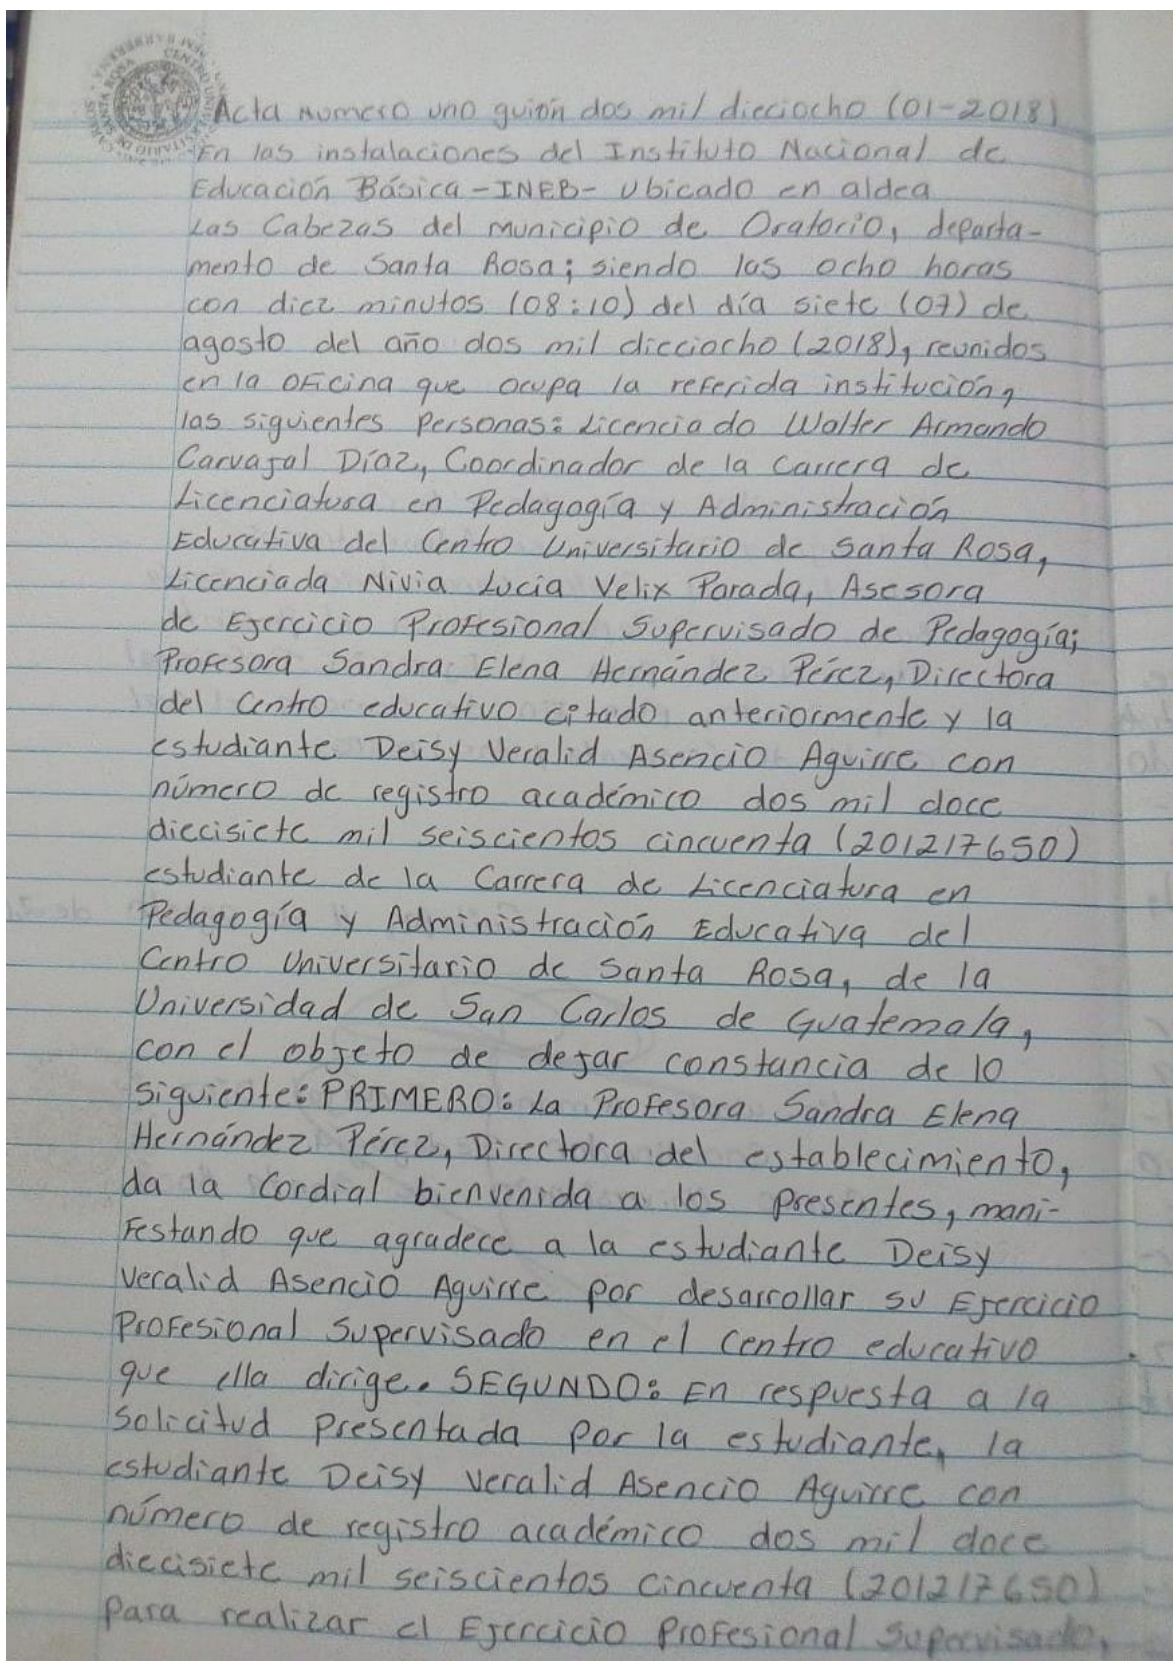 Acta numero uno guión dos mil dieciocho (01-2018)
En las instalaciones del Instituto Nacional de
Educación Básica -INEB- ubicado en aldea
Las Cabezas del municipio de Oratorio, departa-
mento de Santa Rosa; siendo las ocho horas
con diez minutos (08:10) del día siete (07) de
agosto del año dos mil dieciocho (2018), reunidos
en la oficina que ocupa la referida institución,
las siguientes personas: Licenciado Walter Armando
Carvajal Díaz, Coordinador de la carrera de
Licenciatura en Pedagogía y Administración
Educativa del Centro Universitario de Santa Rosa,
Licenciada Nivia Lucia Velix Parada, Asesora
de Ejercicio Profesional Supervisado de Pedagogía;
Profesora Sandra Elena Hernández Pérez, Directora
del Centro educativo citado anteriormente y la
estudiante Deisy Veralid Asencio Aguirre con
número de registro académico dos mil doce
diecisiete mil seiscientos cincuenta (201217650)
estudiante de la Carrera de Licenciatura en
Pedagogía y Administración Educativa del
Centro Universitario de Santa Rosa, de la
Universidad de San Carlos de Guatemala,
con el objeto de dejar constancia de lo
siguiente: PRIMERO: La Profesora Sandra Elena
Hernández Pérez, Directora del establecimiento,
da la Cordial bienvenida a los presentes, mani-
festando que agradece a la estudiante Deisy
Veralid Asencio Aguirre por desarrollar su Ejercicio
Profesional Supervisado en el centro educativo
que ella dirige. SEGUNDO: En respuesta a la
solicitud presentada por la estudiante, la
estudiante Deisy Veralid Asencio Aguirre con
número de registro académico dos mil doce
diecisiete mil seiscientos cincuenta (201217650)
para realizar el Ejercicio Profesional Supervisado,